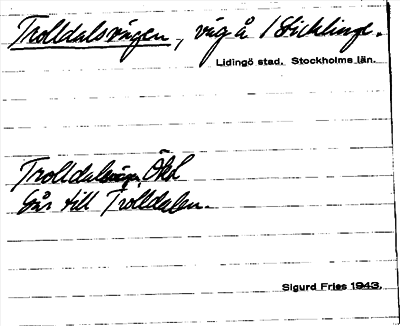 Trolldalsvägen, väg å /Sticklinge.
Lidingö stad. Stockholms län.
Trolldalsvägen Ökd
Går till Trolldalen.
Sigurd Fries 1943.